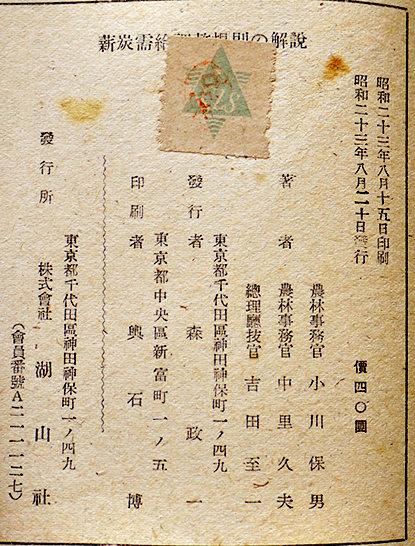 薪炭需給調整規則の解說
昭和二十三年八月十五日印刷
昭和二十三年八月二十日發行 價四〇圓
農林事務官 小川保男
著者 農林事務官 中里久夫
總理廳技官 吉田至一
東京都千代田區神田神保町一ノ四九
發行者 森政一
東京都中央區新富町一ノ五
印刷者 興石博
東京都千代田區神田神保町一ノ四九
發行所 株式會社 湖山社
(會員番號A二一一一二七)